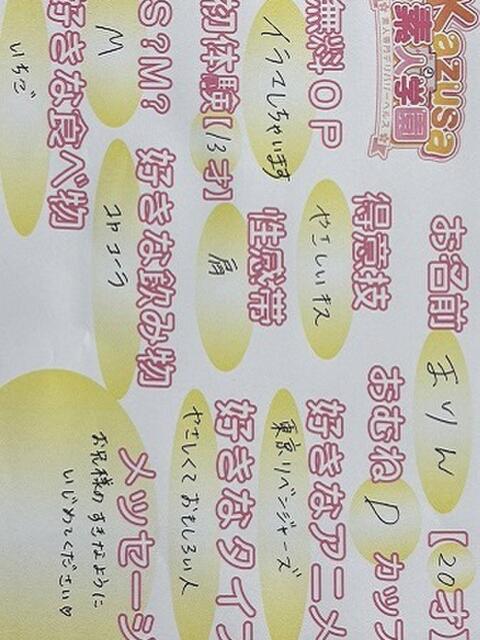 Kazusa
素人学園
素人専門デリバリーヘルス
お名前 まりん 【20才
おむね D カップ
得意技 やさしいキス
好きなアニメ 東京リベンジャーズ
性感帯 肩
好きなタイプ やさしくておもしろい人
無料OP イラマしちゃいます
好きな飲み物 コカコーラ
S?M? M
好きな食べ物 いちご
メッセージ
お兄様のすきなように
いじめてください♡